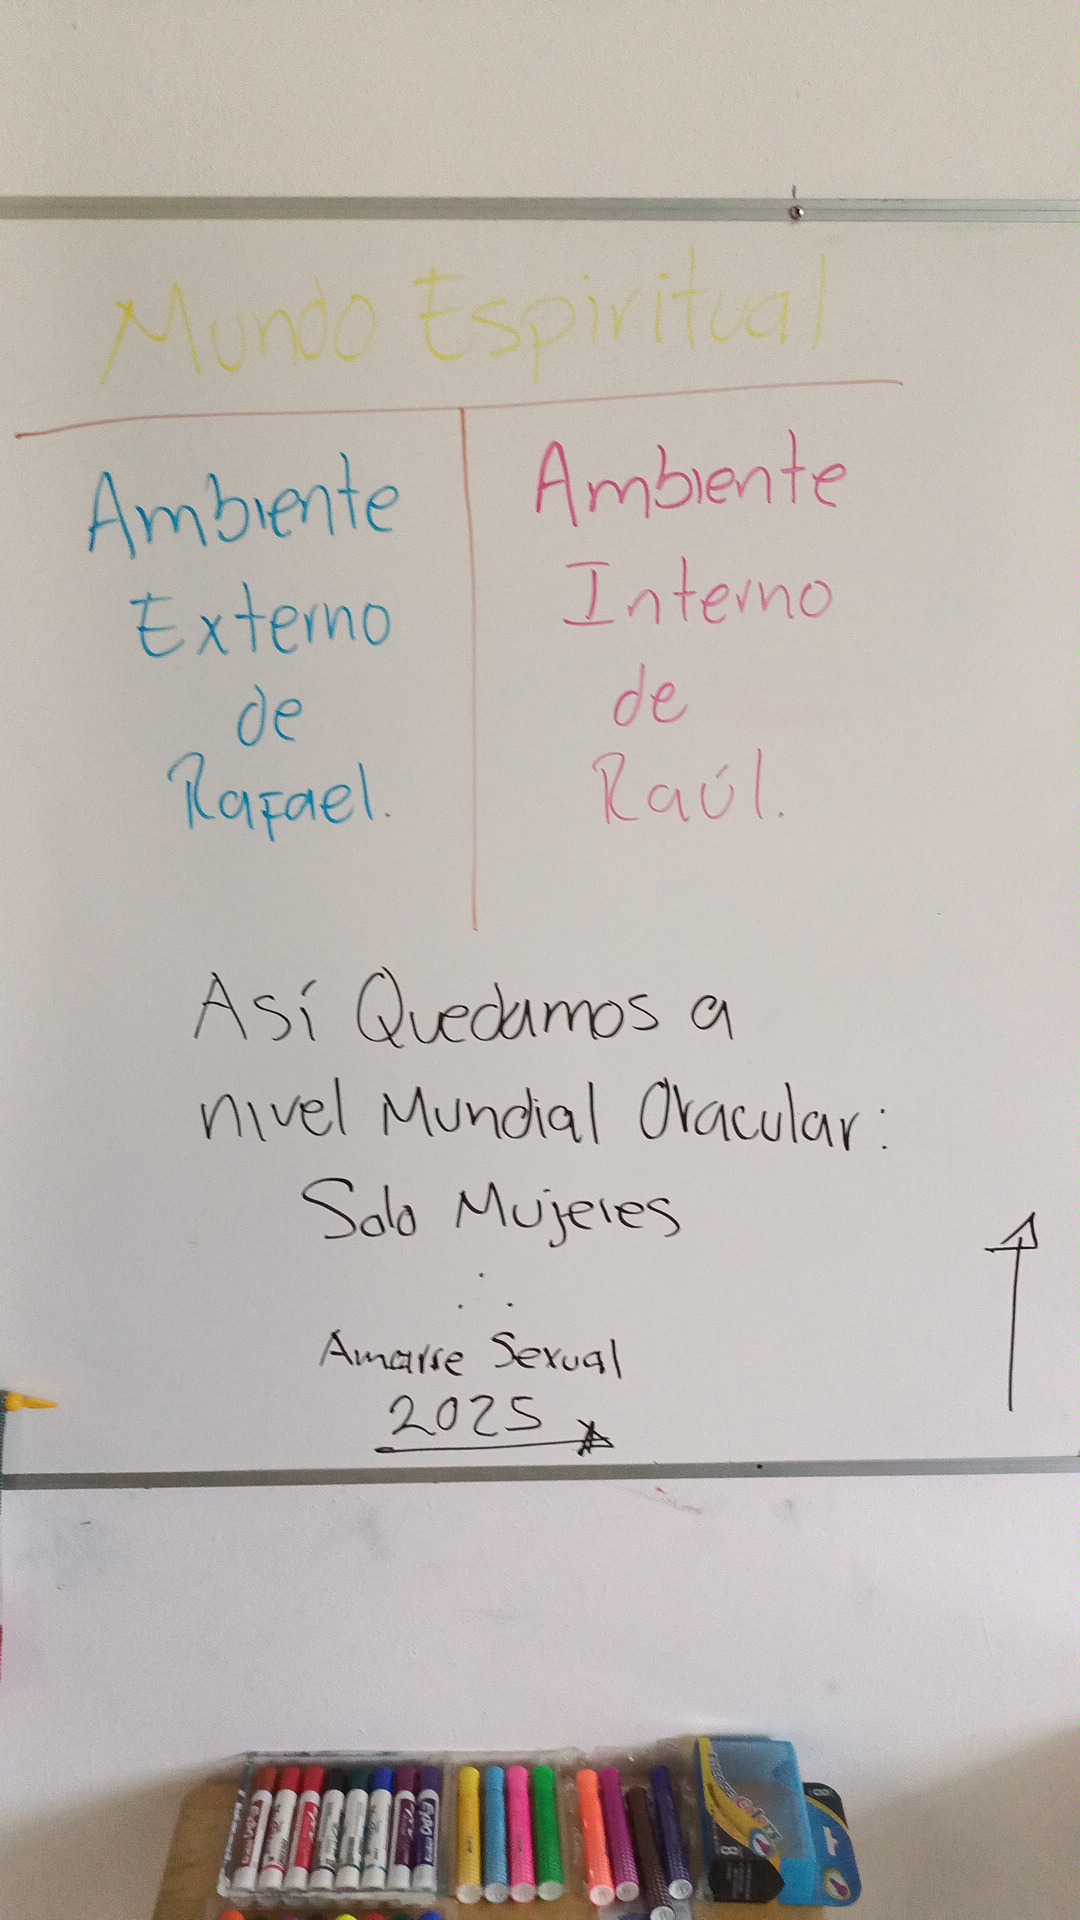 Mundo Espiritual
Ambiente
Externo
de
Rafael.
Ambiente
Interno
de
Raúl.
Así Quedamos a
nivel Mundial Oracular:
Solo Mujeres
∴
Amarse Sexual
2025
EXPO
8
8